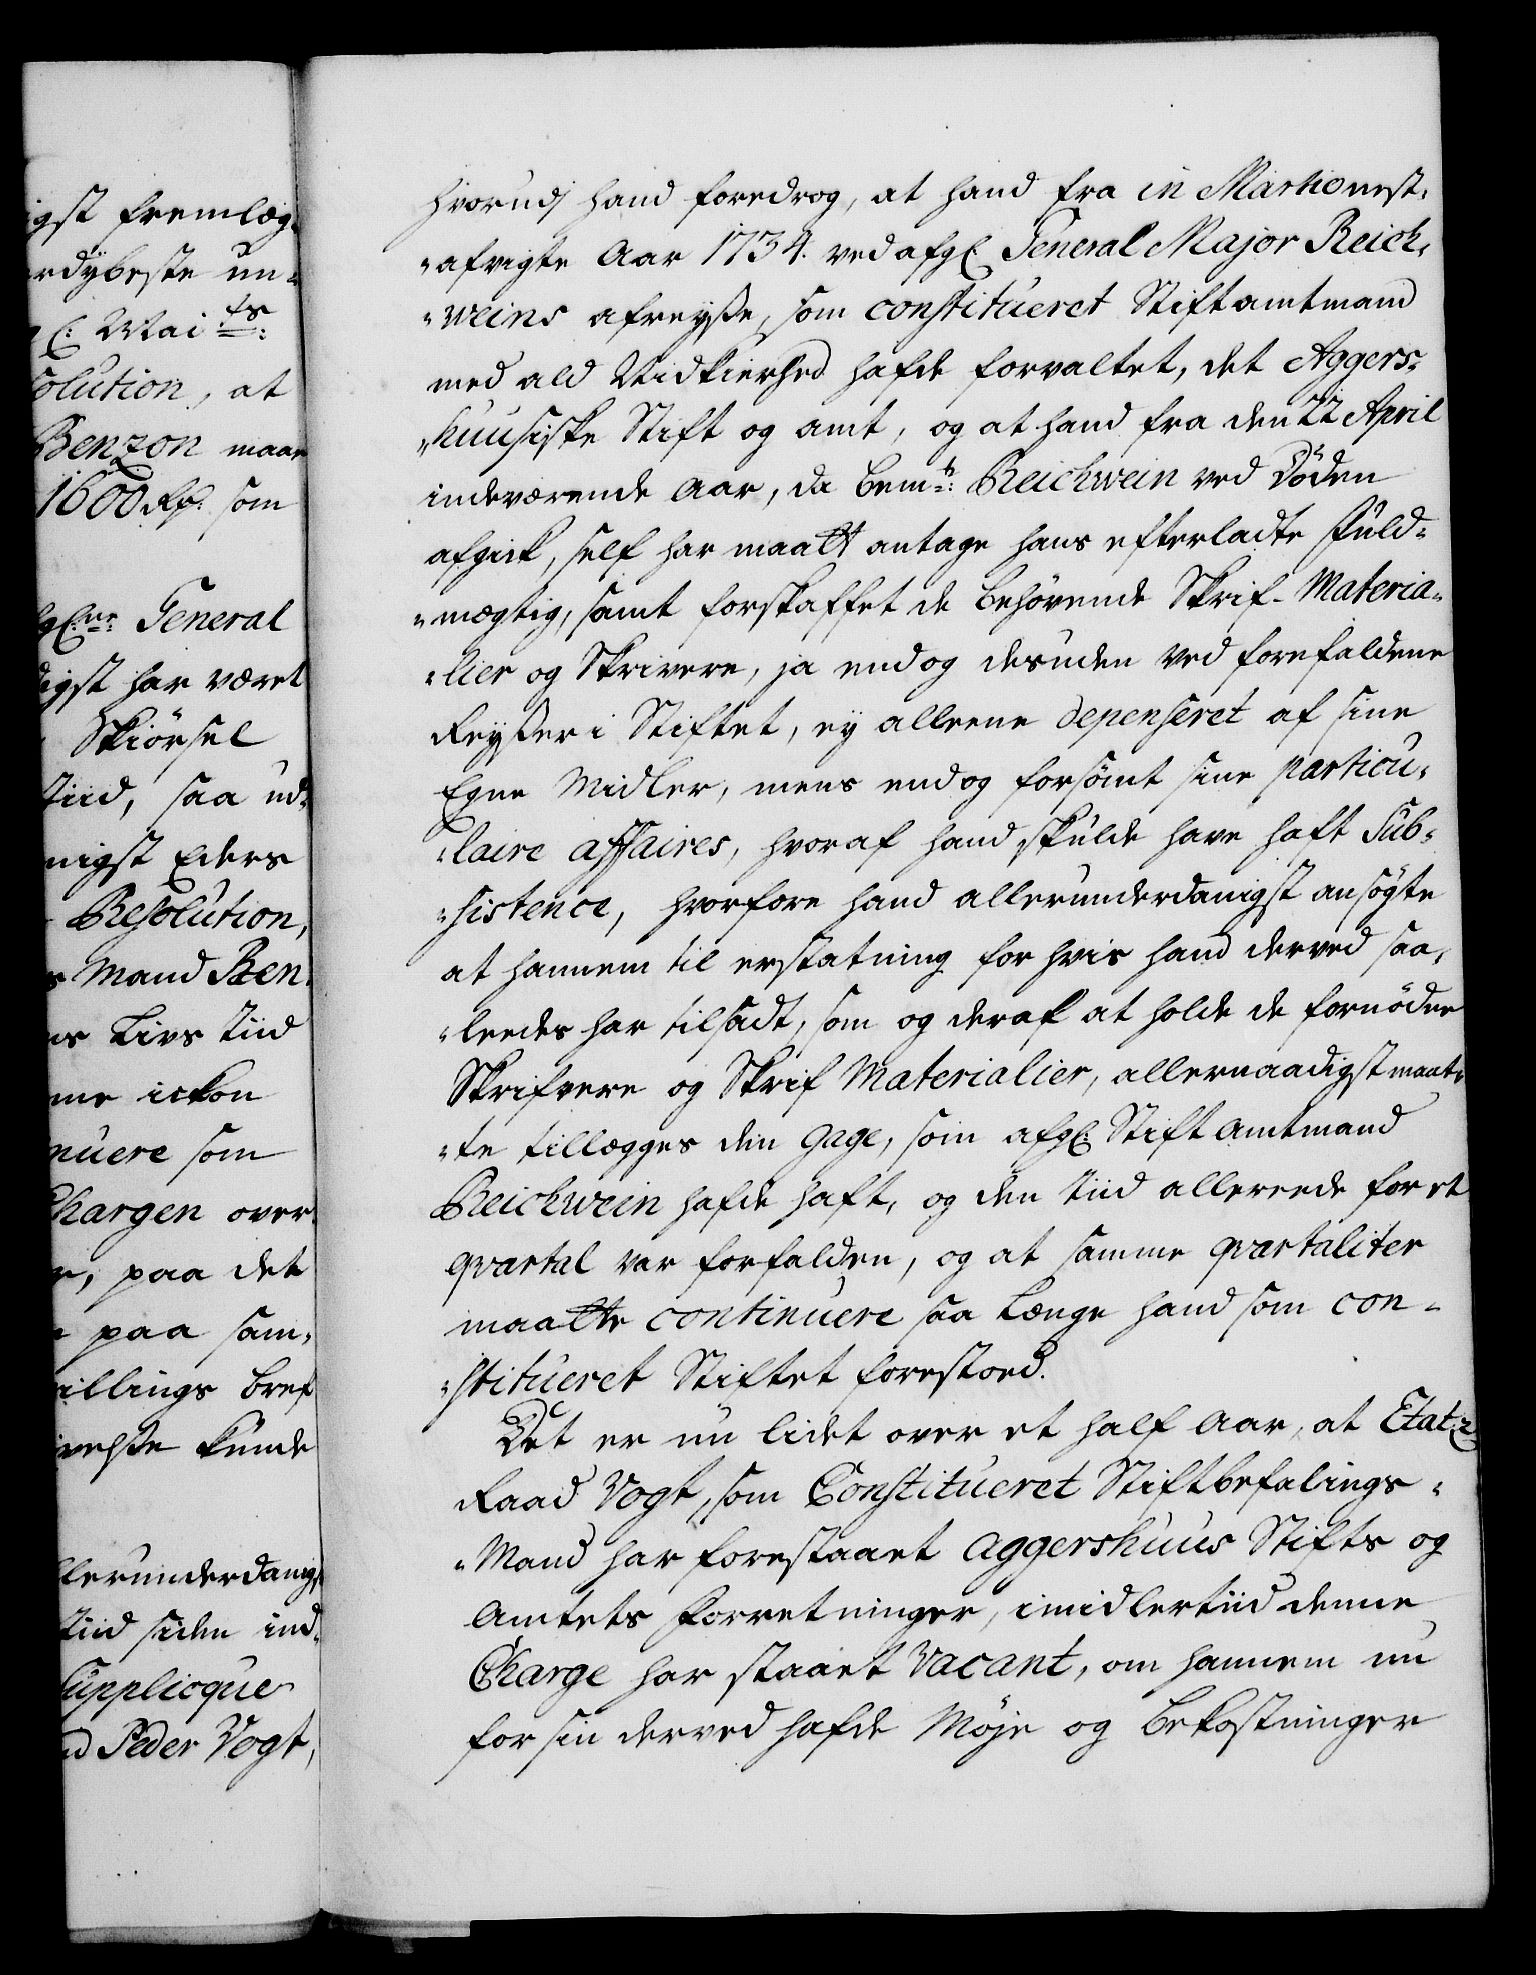 igst fremlæg-
rdybeste un-
E: Mai:ts:
solution, at
Benzon maae
1600 Rdr. som
General
digst har været
Skiörsel
Tiid, saa ud-
nigst Eders
Resolution,
Mand Ben-
ns Livs Tiid
me ickon
nuere som
Chargen over-
paa det
paa sam-
illings bref
velste kunde
llerunderdanigst
Tiid siden ind-
Supplicque
Peder Vogt,
hvorudj hand foredrog, at hand fra in Martio nest-
-afvigte Aar 1734. ved afg: General Major Reich-
-weins afreyße, som constitueret Stiftamtmand
med ald Vidkierhed hafde forvaltet, det Aggers-
-huusiske Stift og amt, og at hand fra den 22 April
indeværende Aar, da bemte: Reichwein ved Döden
afgik, self har maatt antage hans efterladte Fuld-
-mægtig, samt forskaffet de behövende Skrif-Materia-
-lier og Skrivere, ja endog desuden ved forefaldene
Reyßer i Stiftet, ey alleene depenseret af sine
Egne Midler, mens endog forsömt sine particu-
-laire affaires, hvoraf hand skulde have haft Sub-
-sistence, hvorfore hand allerunderdanigst ansögte
at hannem til erstatning for hvis hand derved saa-
-leedes har tilsadt, som og deraf at holde de fornödne
Skrifvere og Skrif Materialier, allernaadigst maat-
-te tillægges den Gage, som afg: Stift Amtmand
Reichwein hafde haft, og den Tiid allereede for et
qvartal var forfalden, og at samme qvartaliter
maatte continuere saa Længe hand som con-
-stitueret Stiftet forestoed.
Det er nu lidet over et half Aar, at Etatz
Raad Vogt, som Constitueret Stiftbefalings-
-Mand har forestaaet Aggershuus Stifts og
Amtets Forretninger, imidlertiid denne
Charge har staaet Vacant, om hannem nu
for sin derved hafde Möje og bekostninger